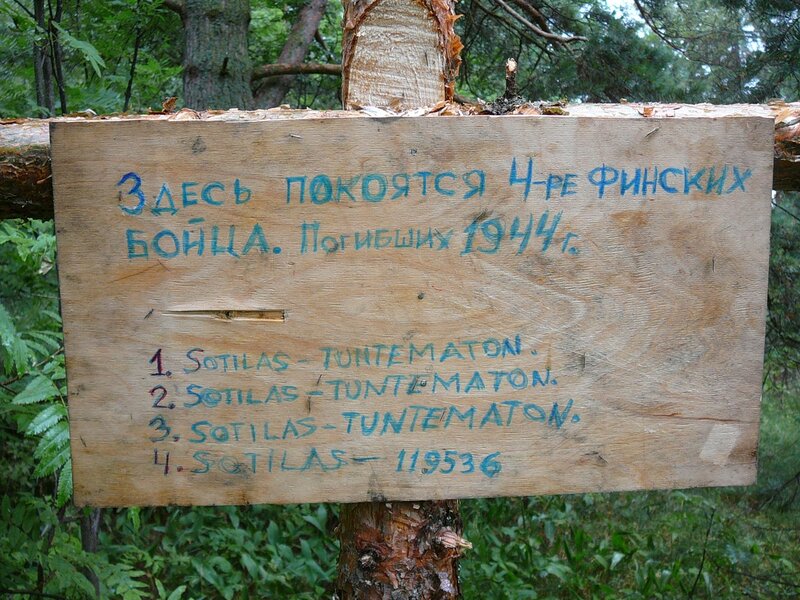 Здесь покоятся 4-ре финских
бойца. Погибших 1944 г.
1. Sotilas - TUNTEMATON.
2. Sotilas - TUNTEMATON.
3. Sotilas - TUNTEMATON.
4. Sotilas - 119536